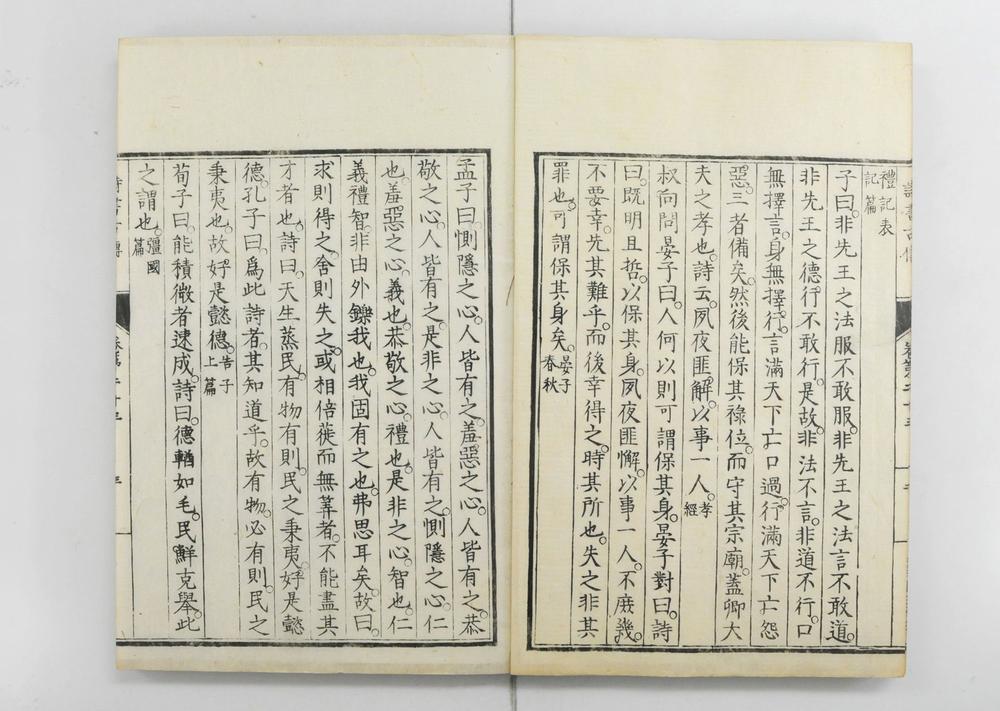 禮記表記篇
子曰。非先王之法服不敢服。非先王之法言不敢道。
非先王之德行不敢行。是故非法不言。非道不行。口
無擇言。身無擇行。言滿天下亡口過。行滿天下亡怨
惡。三者備矣。然後能保其祿位。而守其宗廟。蓋卿大
夫之孝也。詩云。夙夜匪解。以事一人。孝經
叔向問晏子曰。人何以則可謂保其身。晏子對曰。詩
曰。既明且哲。以保其身。夙夜匪懈。以事一人。不庶幾。
不要幸。先其難乎。而後幸得之。時其所也。失之非其
罪也。可謂保其身矣。晏子春秋
孟子曰。惻隱之心。人皆有之。羞惡之心。人皆有之。恭
敬之心。人皆有之。是非之心。人皆有之。惻隱之心。仁
也。羞惡之心。義也。恭敬之心。禮也。是非之心。智也。仁
義禮智。非由外鑠我也。我固有之也。弗思耳矣。故曰。
求則得之。舍則失之。或相倍蓰而無筭者。不能盡其
才者也。詩曰。天生蒸民。有物有則。民之秉夷。好是懿
德。孔子曰。爲此詩者。其知道乎。故有物必有則。民之
秉夷也。故好是懿德。告子上篇
荀子曰。能積微者速成。詩曰。德輶如毛。民鮮克舉。此
之謂也。彊國篇